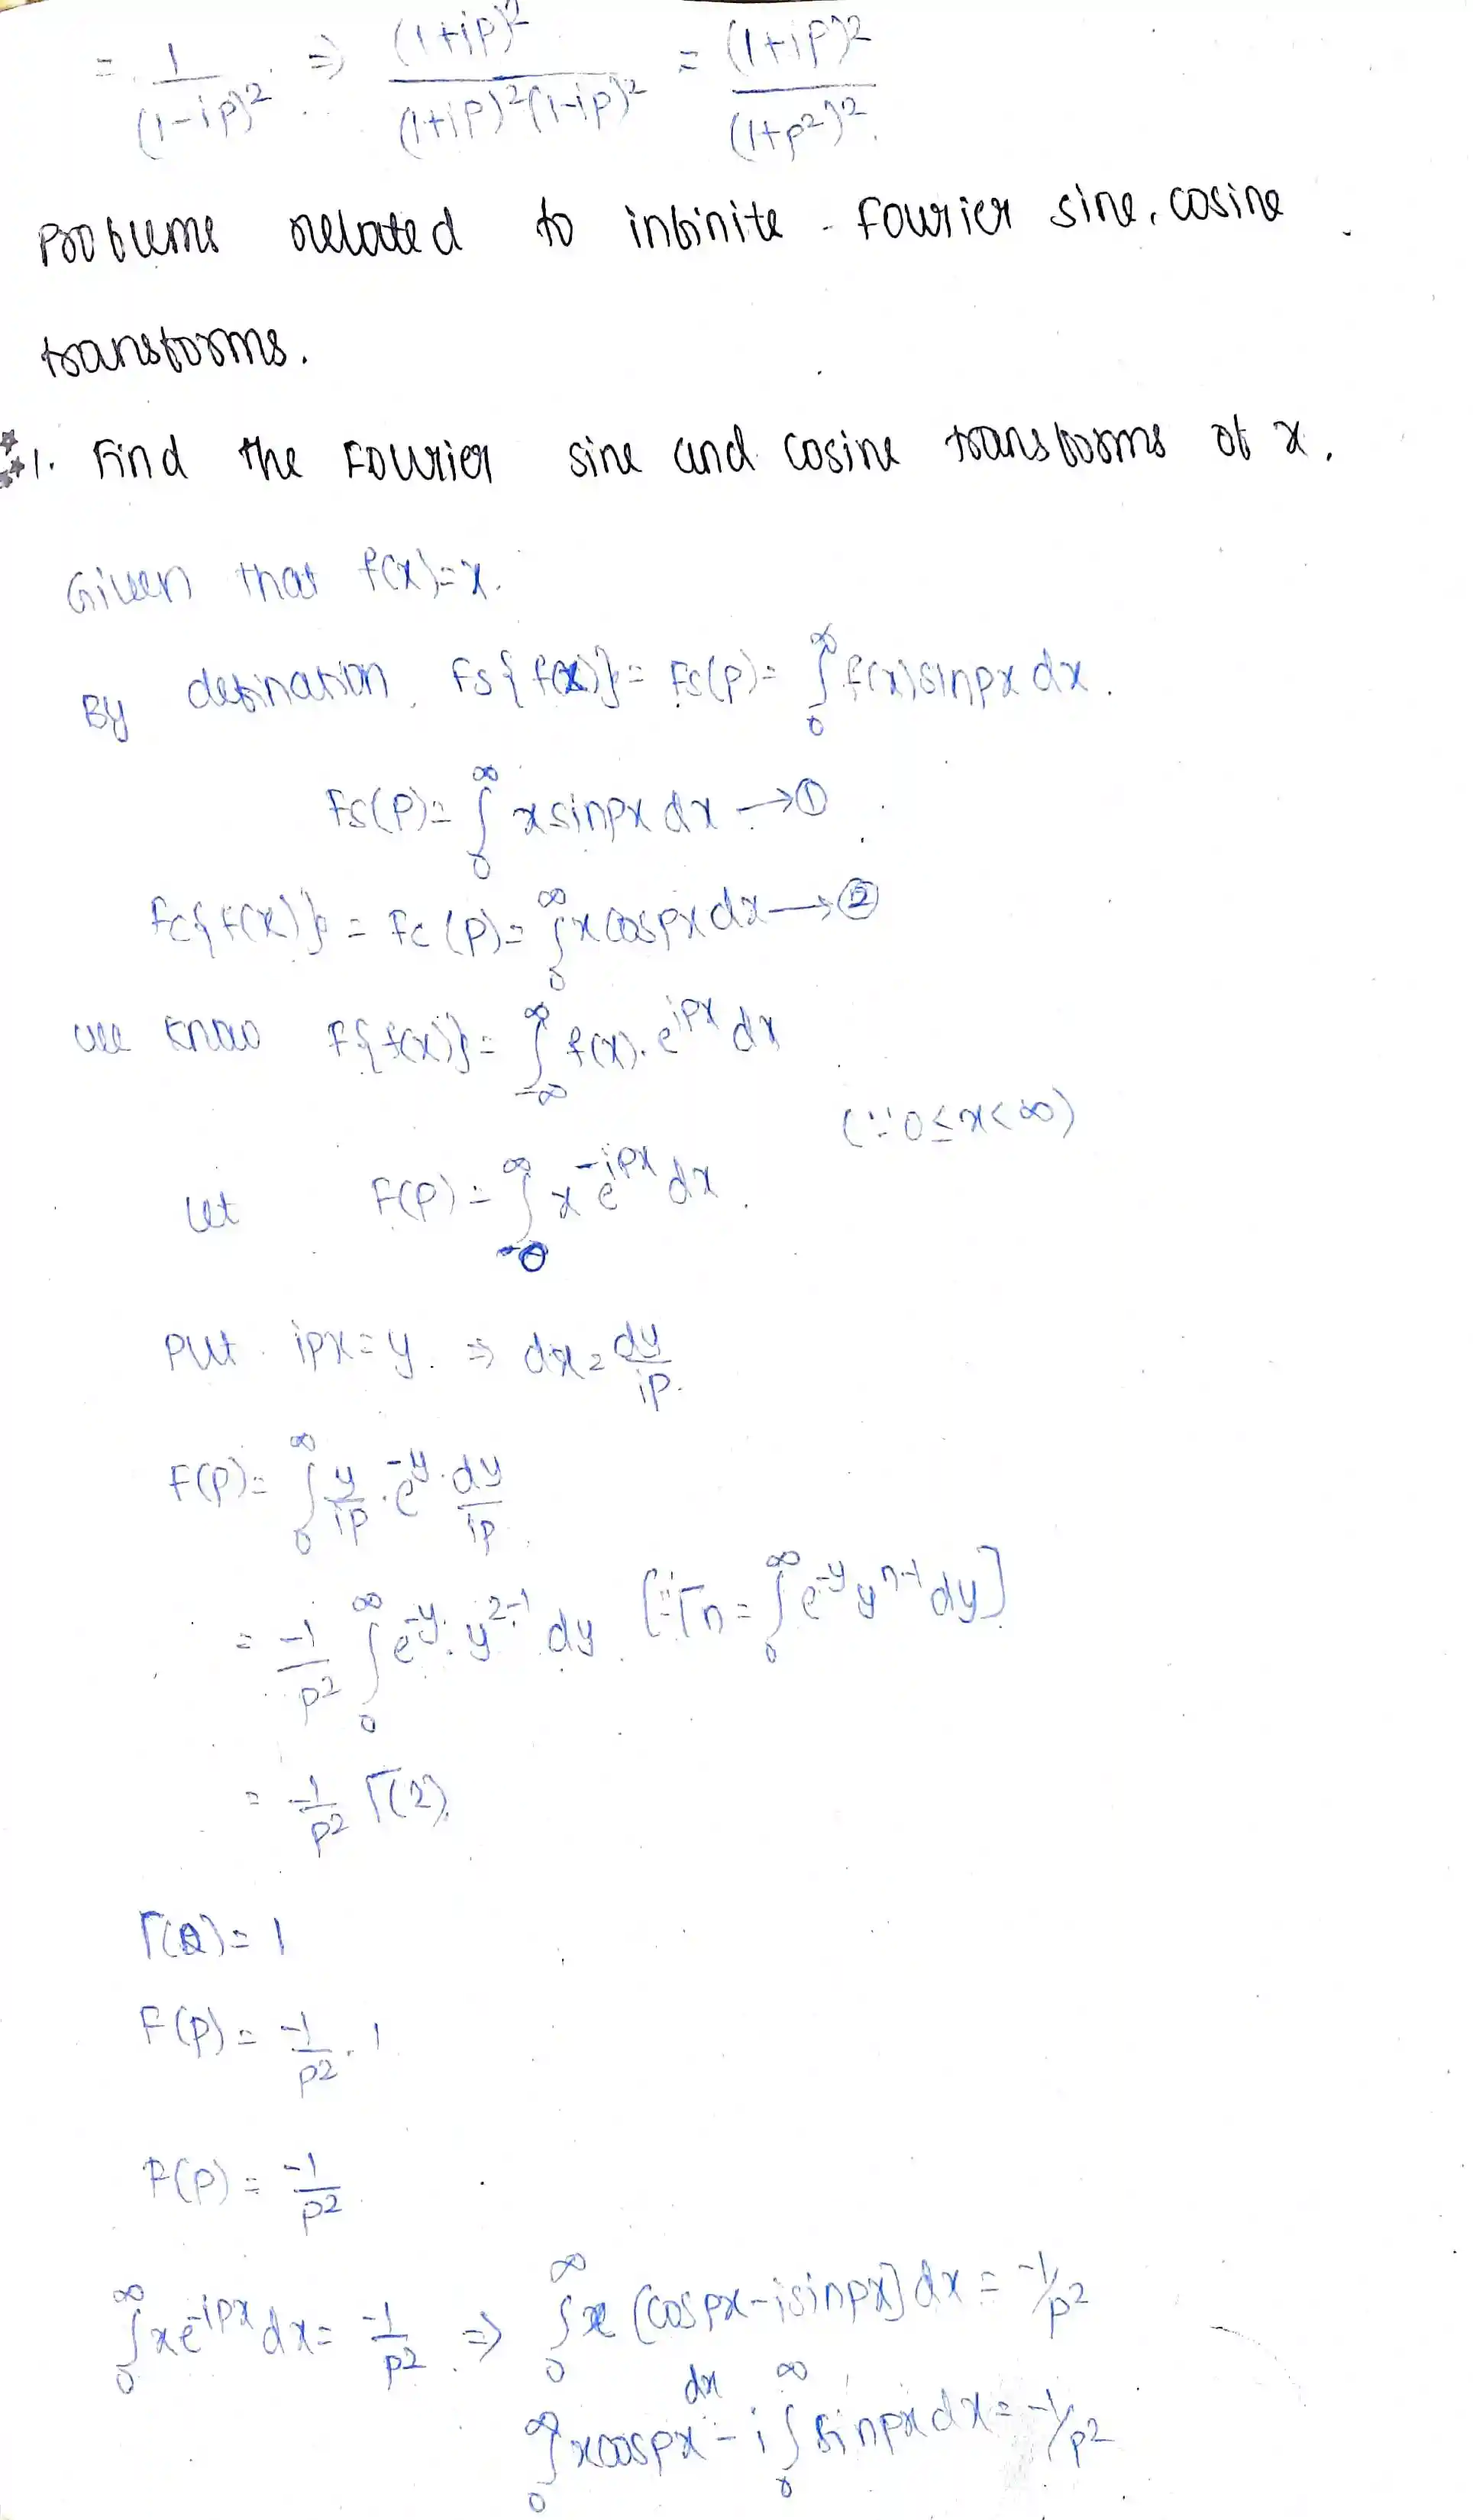 = 1/(1-ip)² ⇒ (1+ip)²/(1+ip)²(1-ip)² = (1+ip)²/(1+p²)².
Problems related to infinite - Fourier sine, cosine
transforms.
1. Find the Fourier sine and cosine transforms of x.
Given that f(x)=x.
By defination, Fs{f(x)} = Fs(p) = ∫₀^∞ f(x) sinpx dx.
Fs(p) = ∫₀^∞ x sinpx dx → ①
Fc{f(x)} = Fc(p) = ∫₀^∞ x cospx dx → ②
we know F{f(x)} = ∫_{-∞}^∞ f(x). e^{ipx} dx
(∵ 0 ≤ x < ∞)
Let F(p) = ∫₀^∞ x e^{-ipx} dx.
Put ipx = y. ⇒ dx = dy/ip.
F(p) = ∫₀^∞ y/ip . e^{-y} . dy/ip
= -1/p² ∫₀^∞ e^{-y}. y^{2-1} dy [∵ Γn = ∫₀^∞ e^{-y} y^{n-1} dy]
= -1/p² Γ(2).
Γ(2) = 1
F(p) = -1/p² . 1
F(p) = -1/p²
∫₀^∞ x e^{-ipx} dx = -1/p² ⇒ ∫₀^∞ x (cospx - isinpx) dx = -1/p²
∫₀^∞ x cospx dx - i ∫₀^∞ sinpx dx = -1/p²